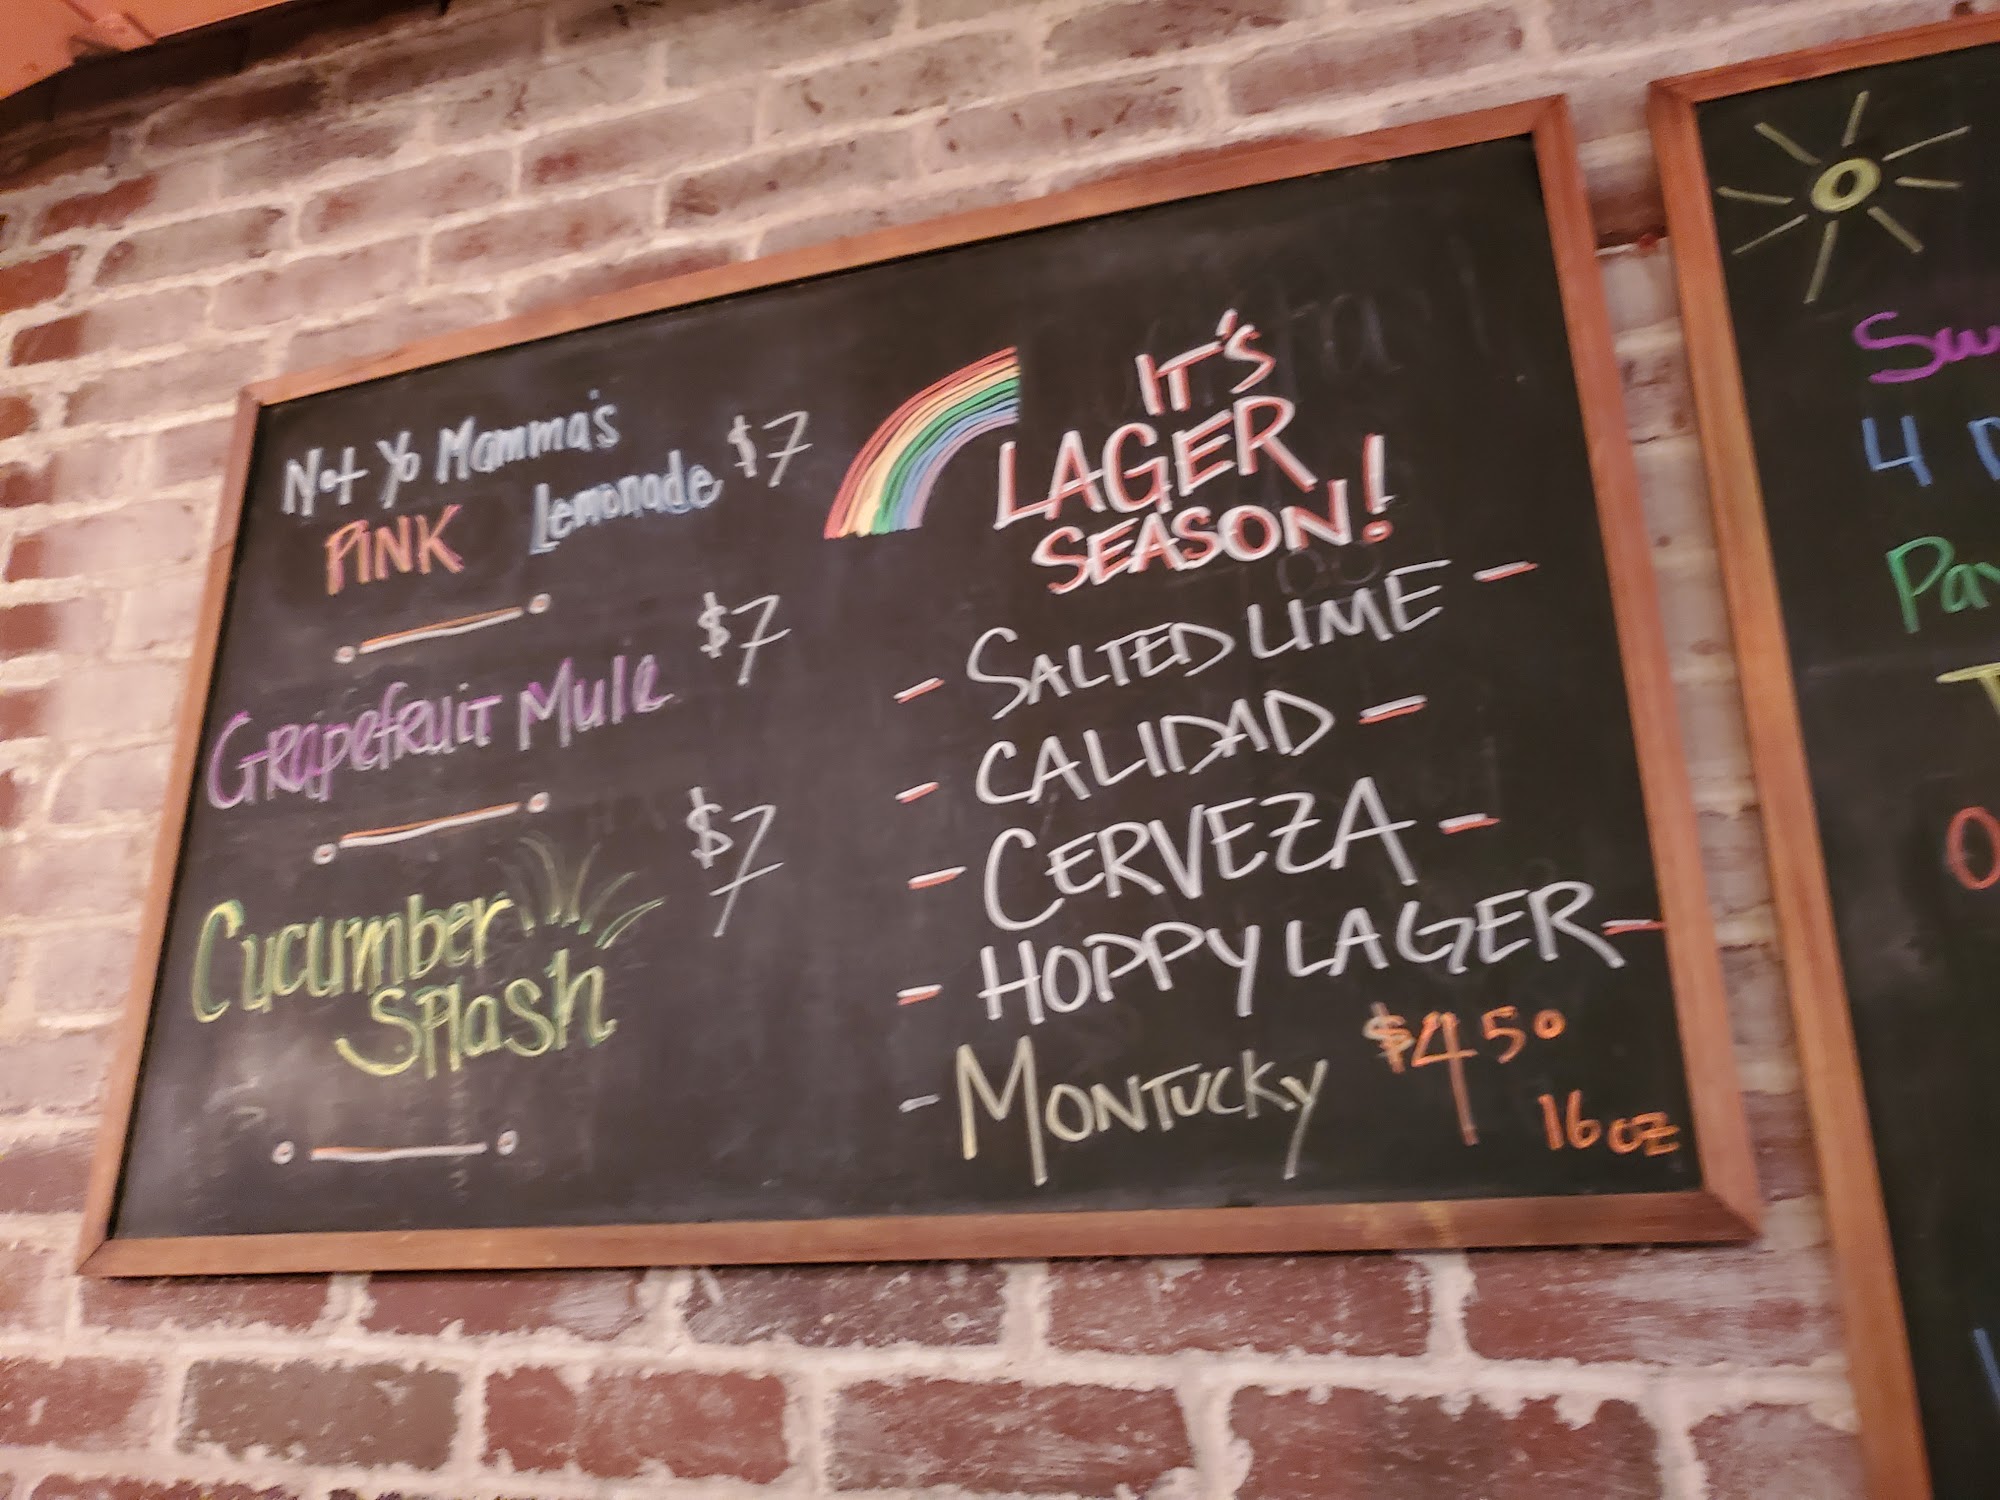 Not Yo Mamma's
PINK Lemonade $7
Grapefruit Mule $7
Cucumber $7
Splash
IT'S
LAGER
SEASON!
- SALTED LIME -
- CALIDAD -
- CERVEZA -
- HOPPY LAGER -
- MONTUCKY $4 50
16 OZ
4